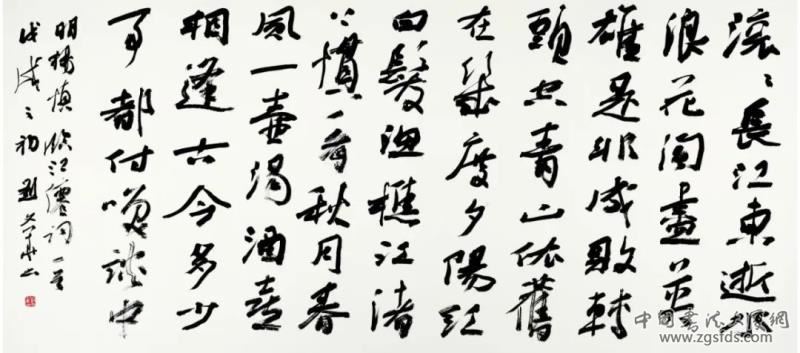 滚〻長江東逝水
浪花淘盡英
雄是非成敗轉
頭空青山依舊
在幾度夕陽紅
白髮漁樵江渚
上慣看秋月春
風一壺濁酒喜
相逢古今多少
事都付笑談中
明楊慎臨江僊詞一首
戊戌之初
www.zgsfds.com